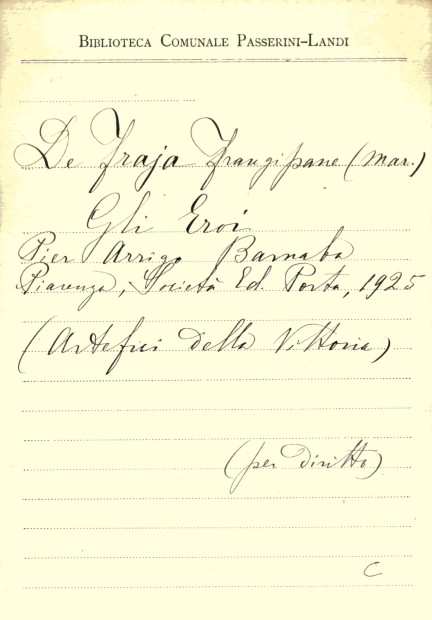 BIBLIOTECA COMUNALE PASSERINI-LANDI
De Fraja Frangipane (mar.)
Gli Eroi
Pier Arrigo Barnaba
Piacenza, Società Ed. Porta, 1925
(Artefici della Vittoria)
(per diritto)
C